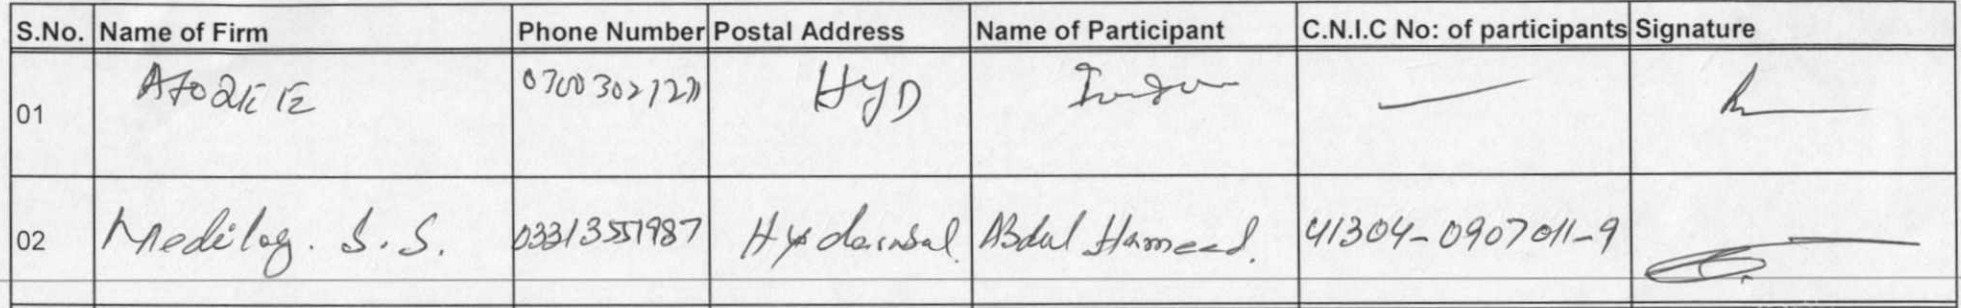 S.No. Name of Firm Phone Number Postal Address Name of Participant C.N.I.C No: of participants Signature
01 HYD
02 Medilog. S.S. 03313551987 Hyderabad Abdul Hameed. 41304-0907011-9